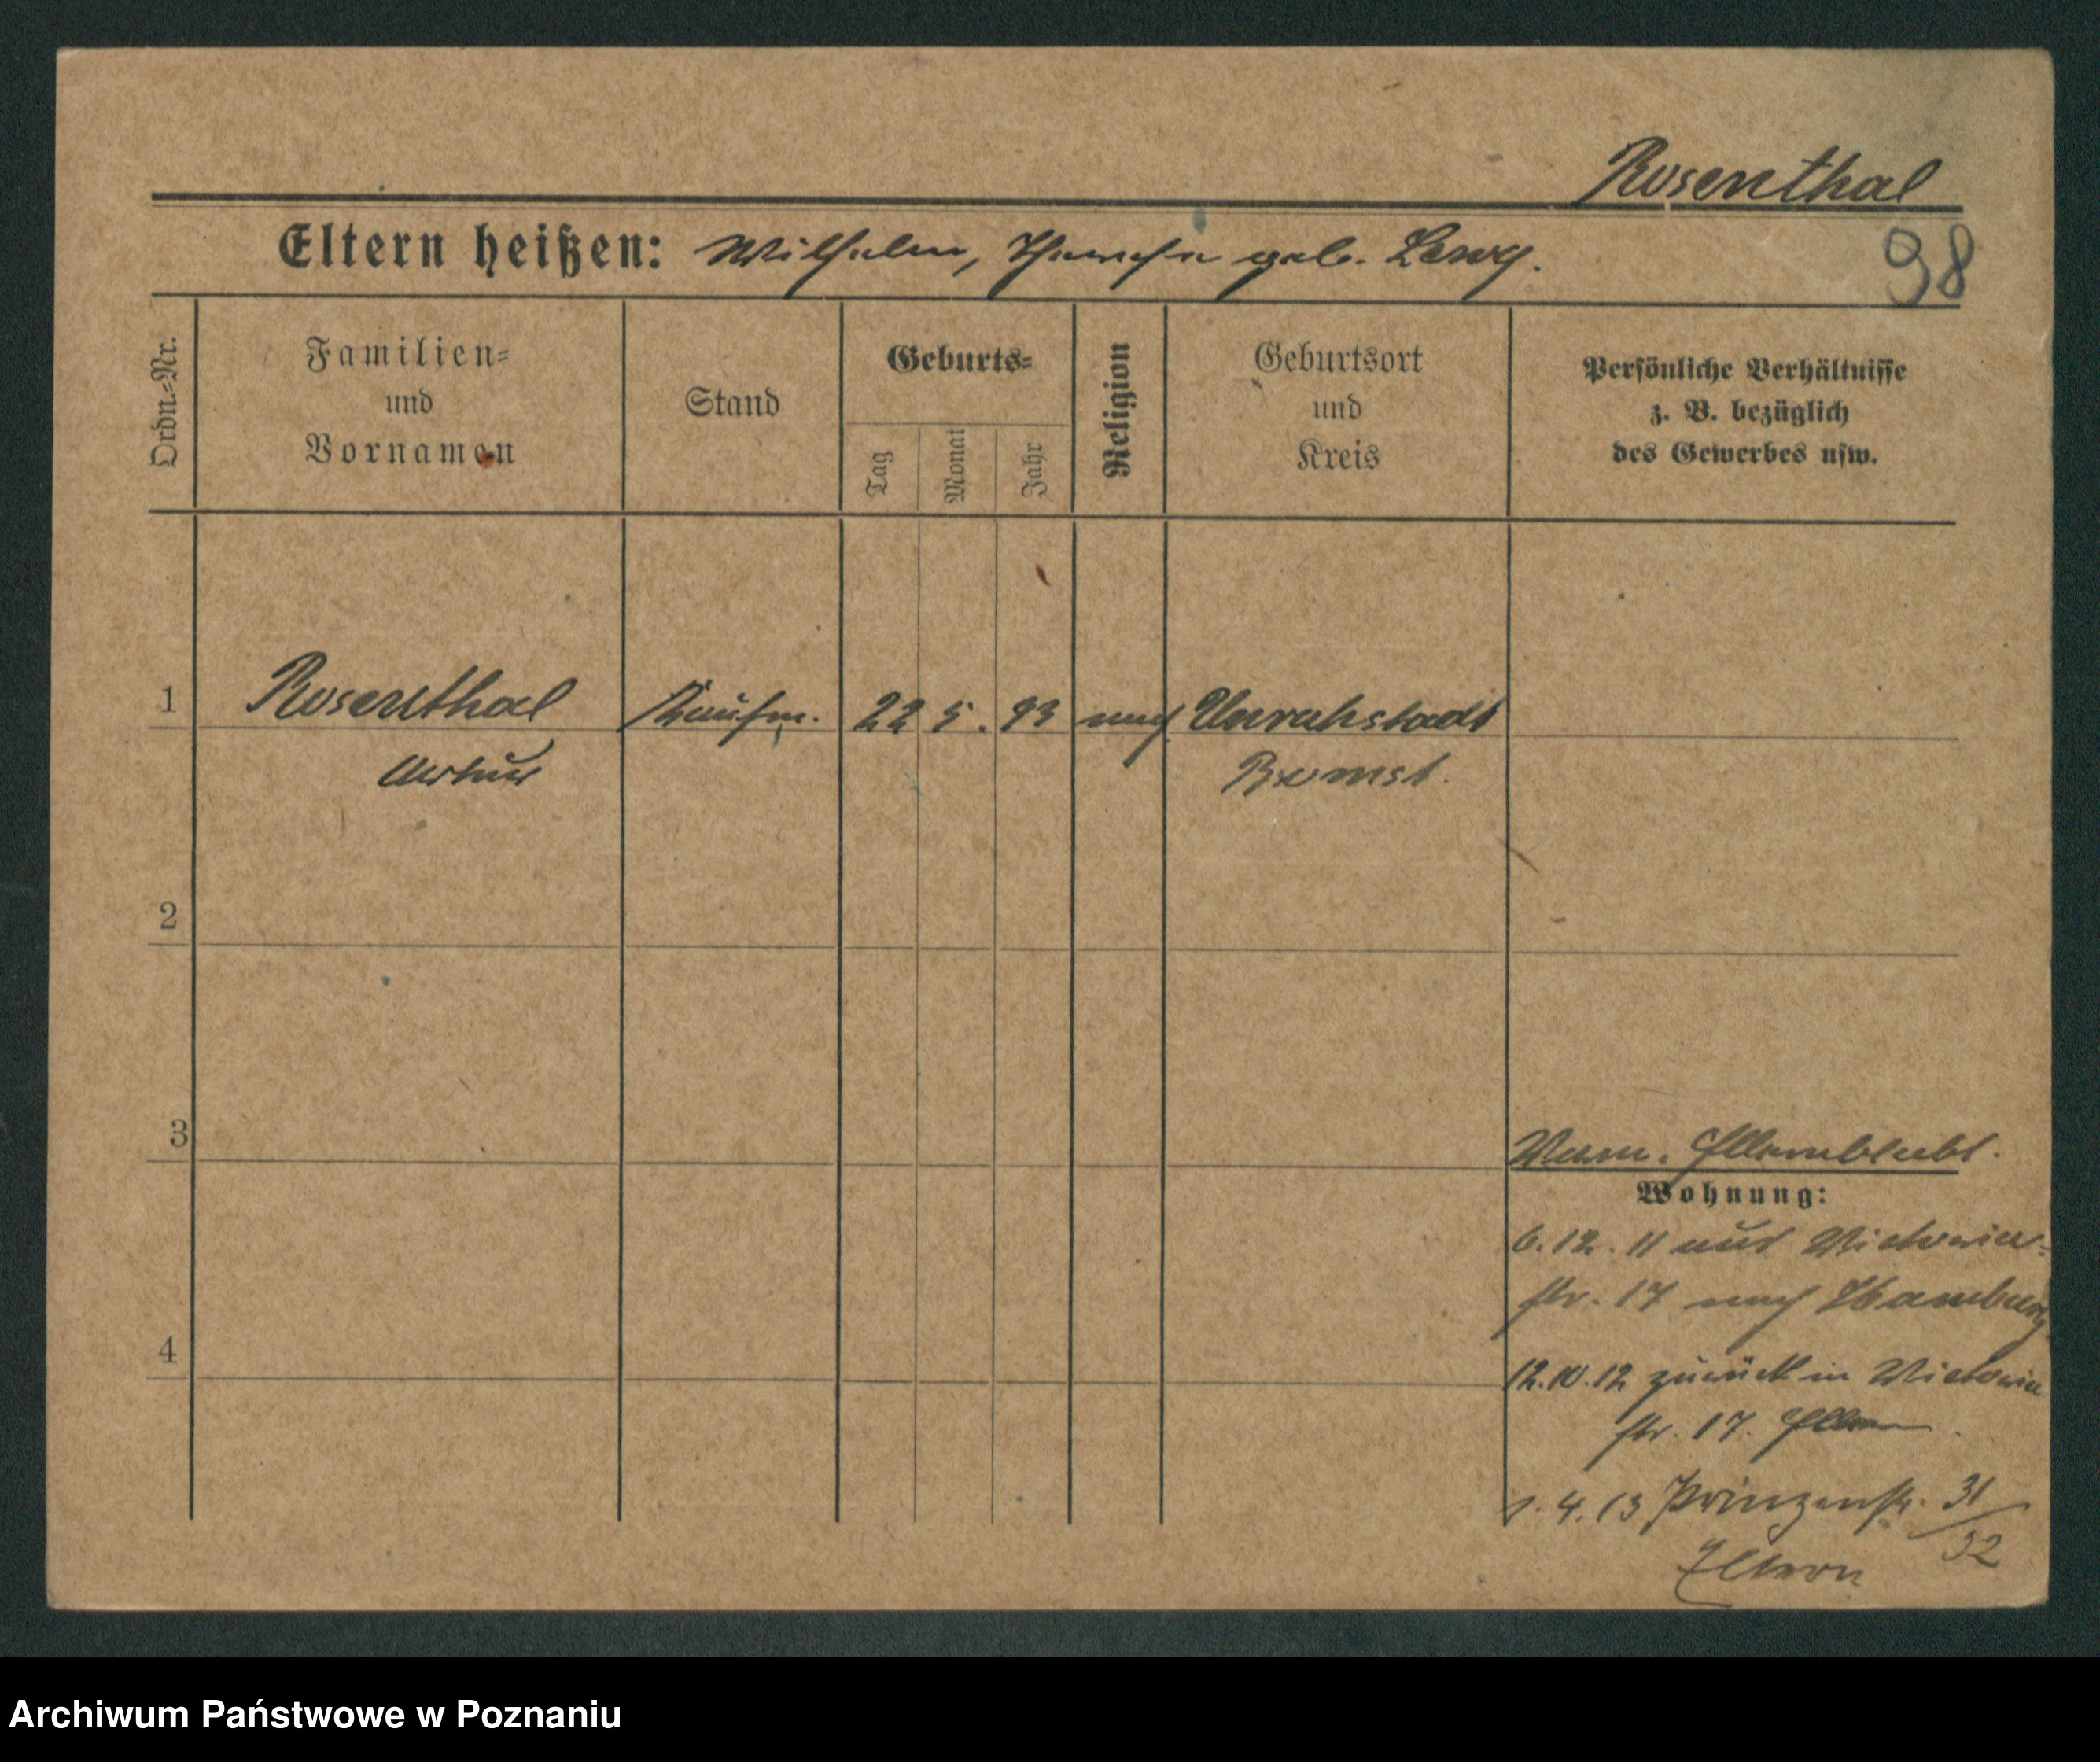 Rosenthal
Eltern heißen: Wilhelm, geb. Lewy.
98
Ordn.=Nr.
Familien=
und
Vornamen
Stand
Geburts=
Tag
Monat
Jahr
Religion
Geburtsort
und
Kreis
Persönliche Verhältnisse
z. B. bezüglich
des Gewerbes usw.
1 Rosenthal Kaufm. 22 5. 93 Unruhstadt
Artur Bomst.
2
3
Wohnung:
6.12.11 aus Victoria=
str. 17 nach Hamburg
4
12.10.12 zurück in Victoria
str. 17. Eltern
1.4.13 Prinzenstr. 31/32
Eltern
Archiwum Państwowe w Poznaniu